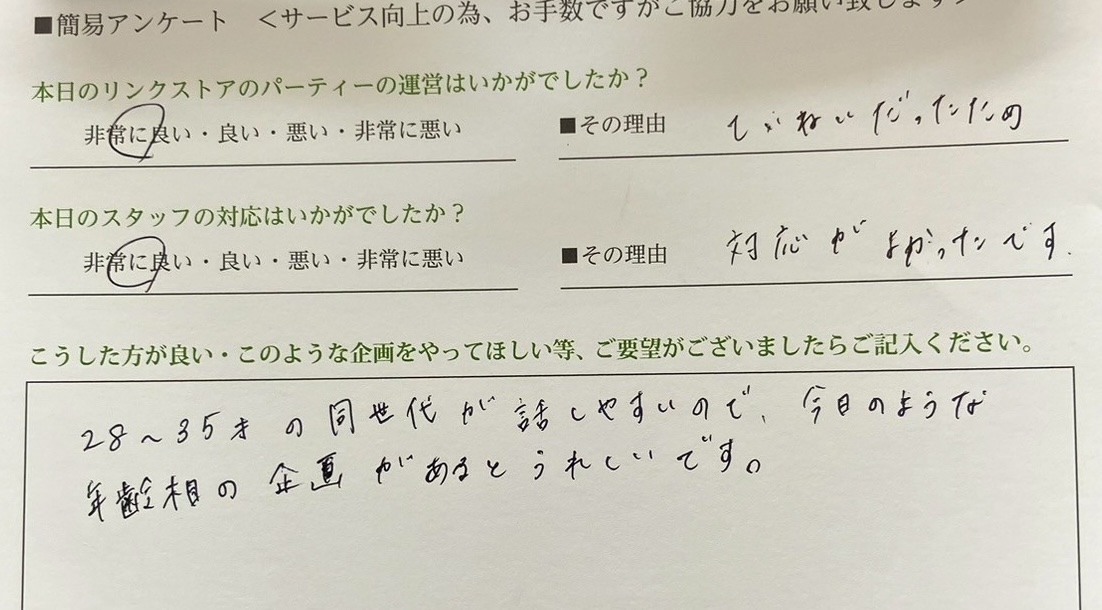 ■簡易アンケート ＜サービス向上の為、お手数ですがご協力をお願い致します＞
本日のリンクストアのパーティーの運営はいかがでしたか？
非常に良い・良い・悪い・非常に悪い ■その理由 ていねいだったため
本日のスタッフの対応はいかがでしたか？
非常に良い・良い・悪い・非常に悪い ■その理由 対応がよかったです.
こうした方が良い・このような企画をやってほしい等、ご要望がございましたらご記入ください。
28～35才の同世代が話しやすいので、今日のような
年齢相の企画があるとうれしいです。